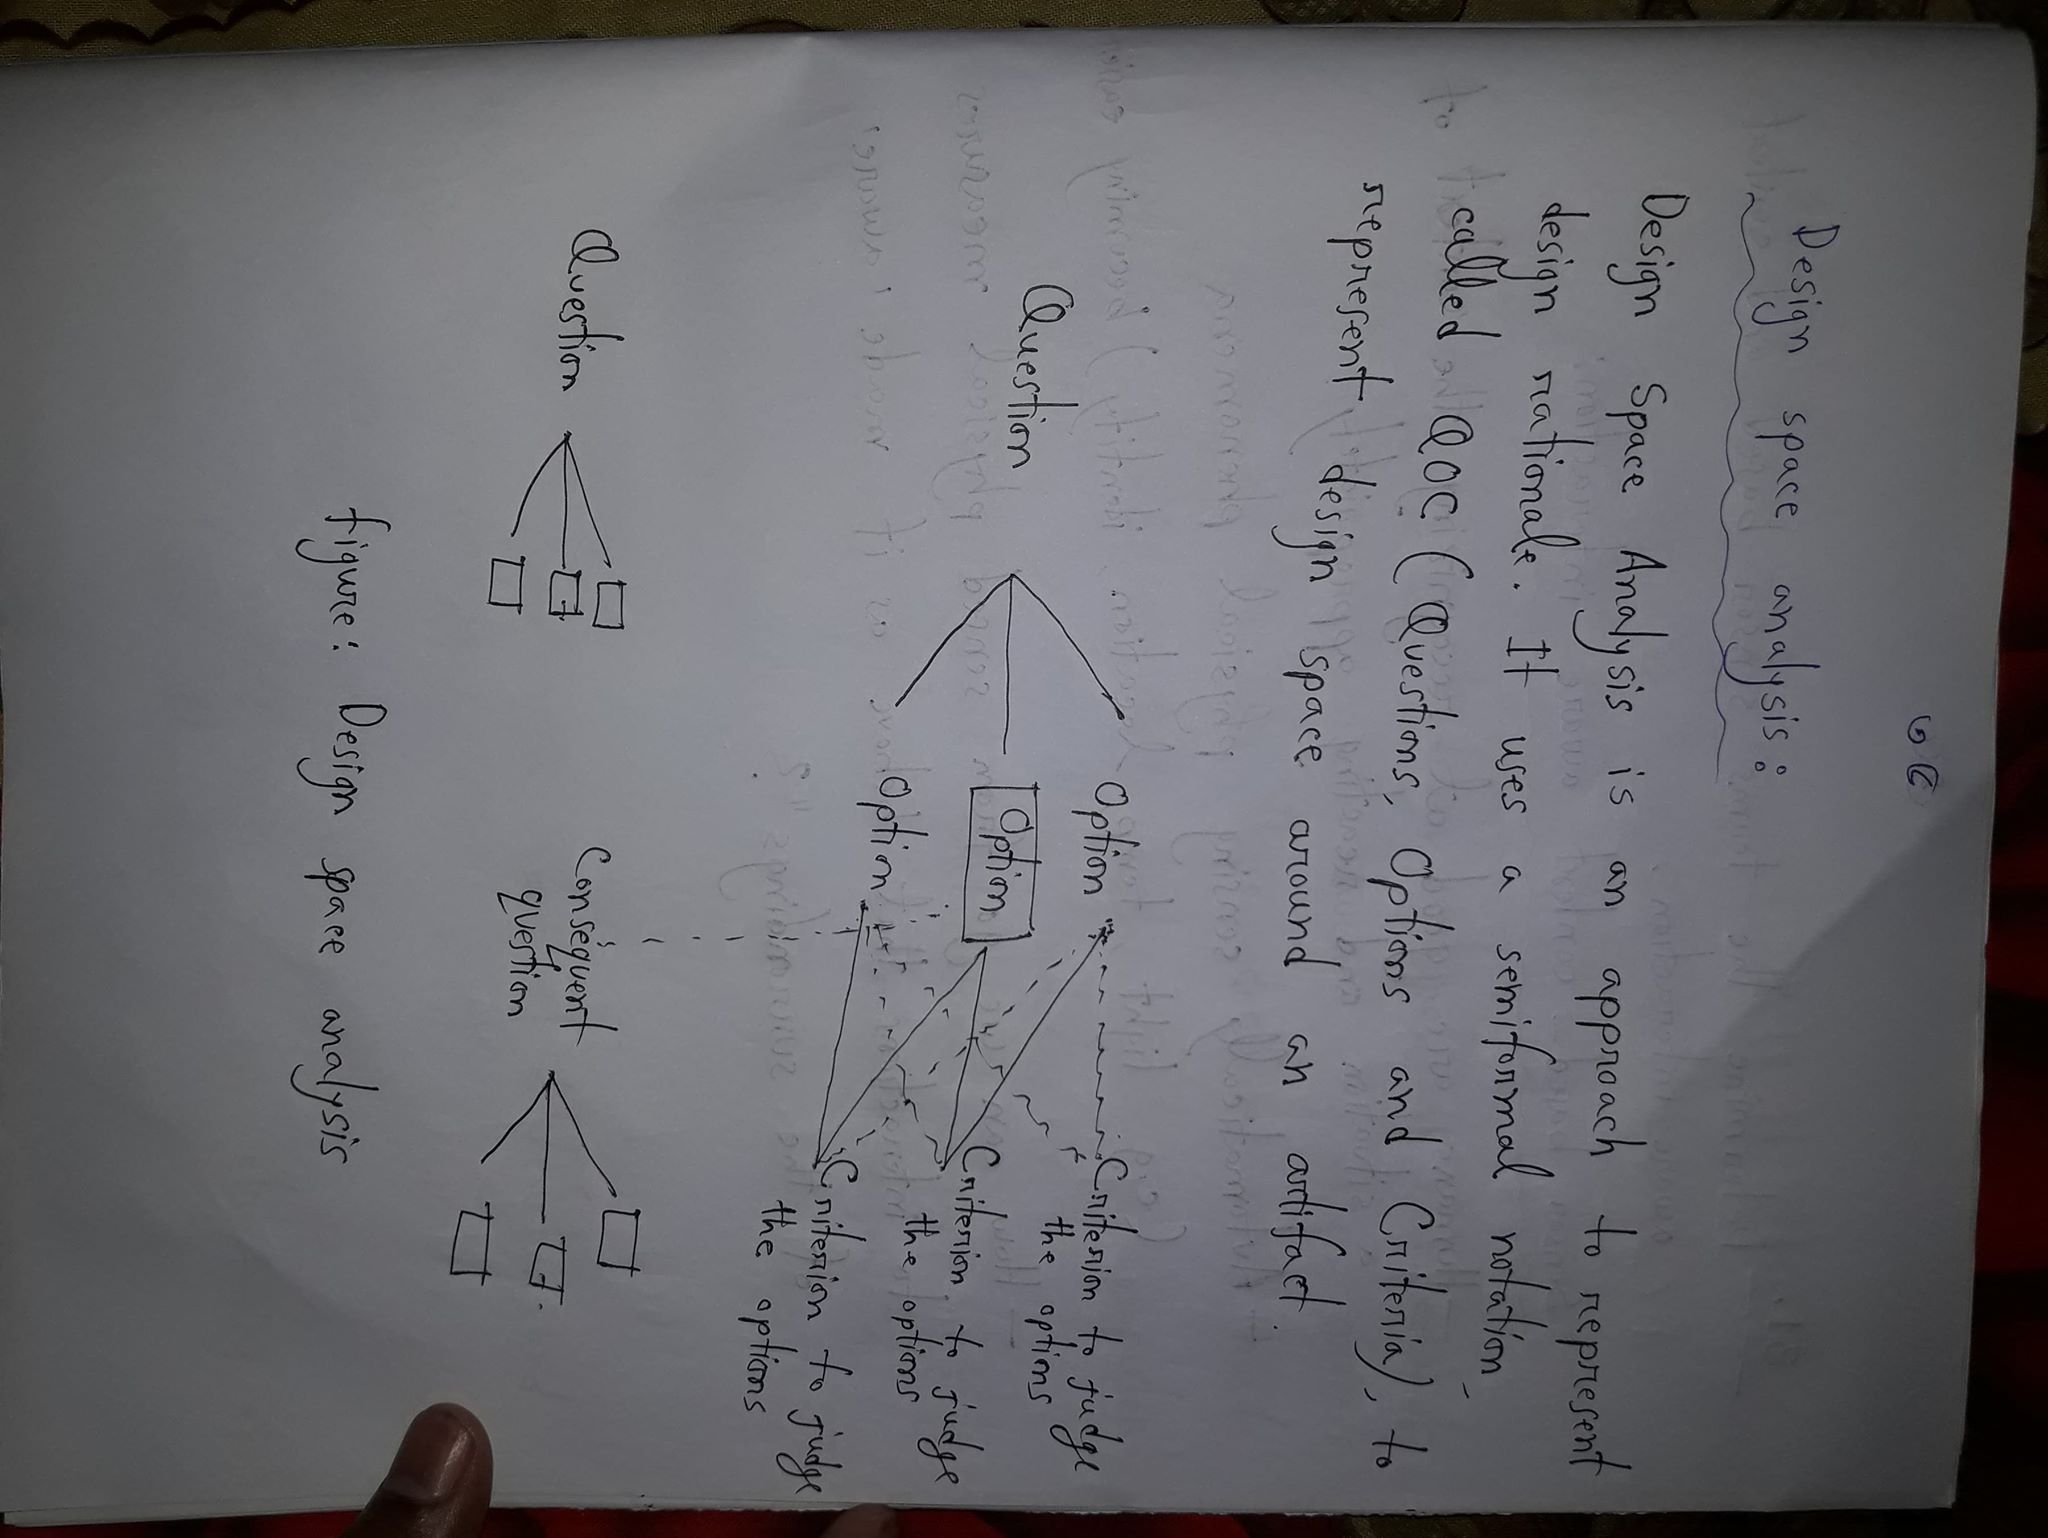 ৩৫
Design space analysis:
Design Space Analysis is an approach to represent
design rationale. It uses a semiformal notation,
called QOC (Questions, Options and Criteria), to
represent design space around an artifact.
Question
Option
Option
Option
Criterion to judge
the options
Criterion to judge
the options
Criterion to judge
the options
Question
Consequent
question
figure: Design space analysis